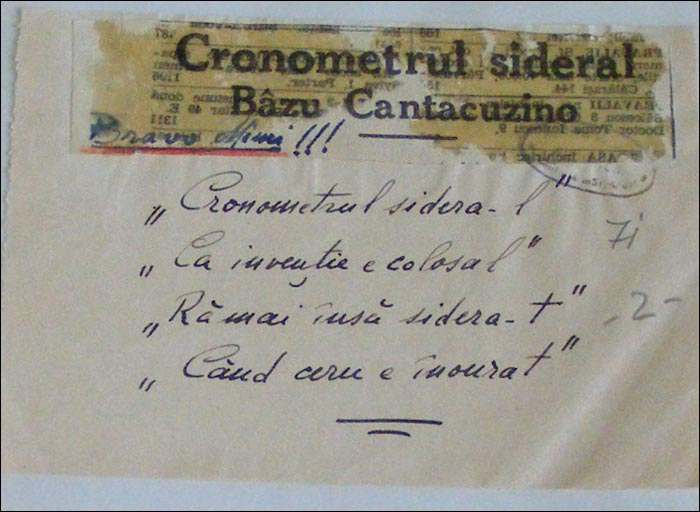 Cronometrul sideral
Bâzu Cantacuzino
Bravo Mimi!!!
„Cronometrul sidera-l"
„Ca invenție e colosal"
7i
„Rămai însă sidera-t"
-2-
„Când ceru e înourat"